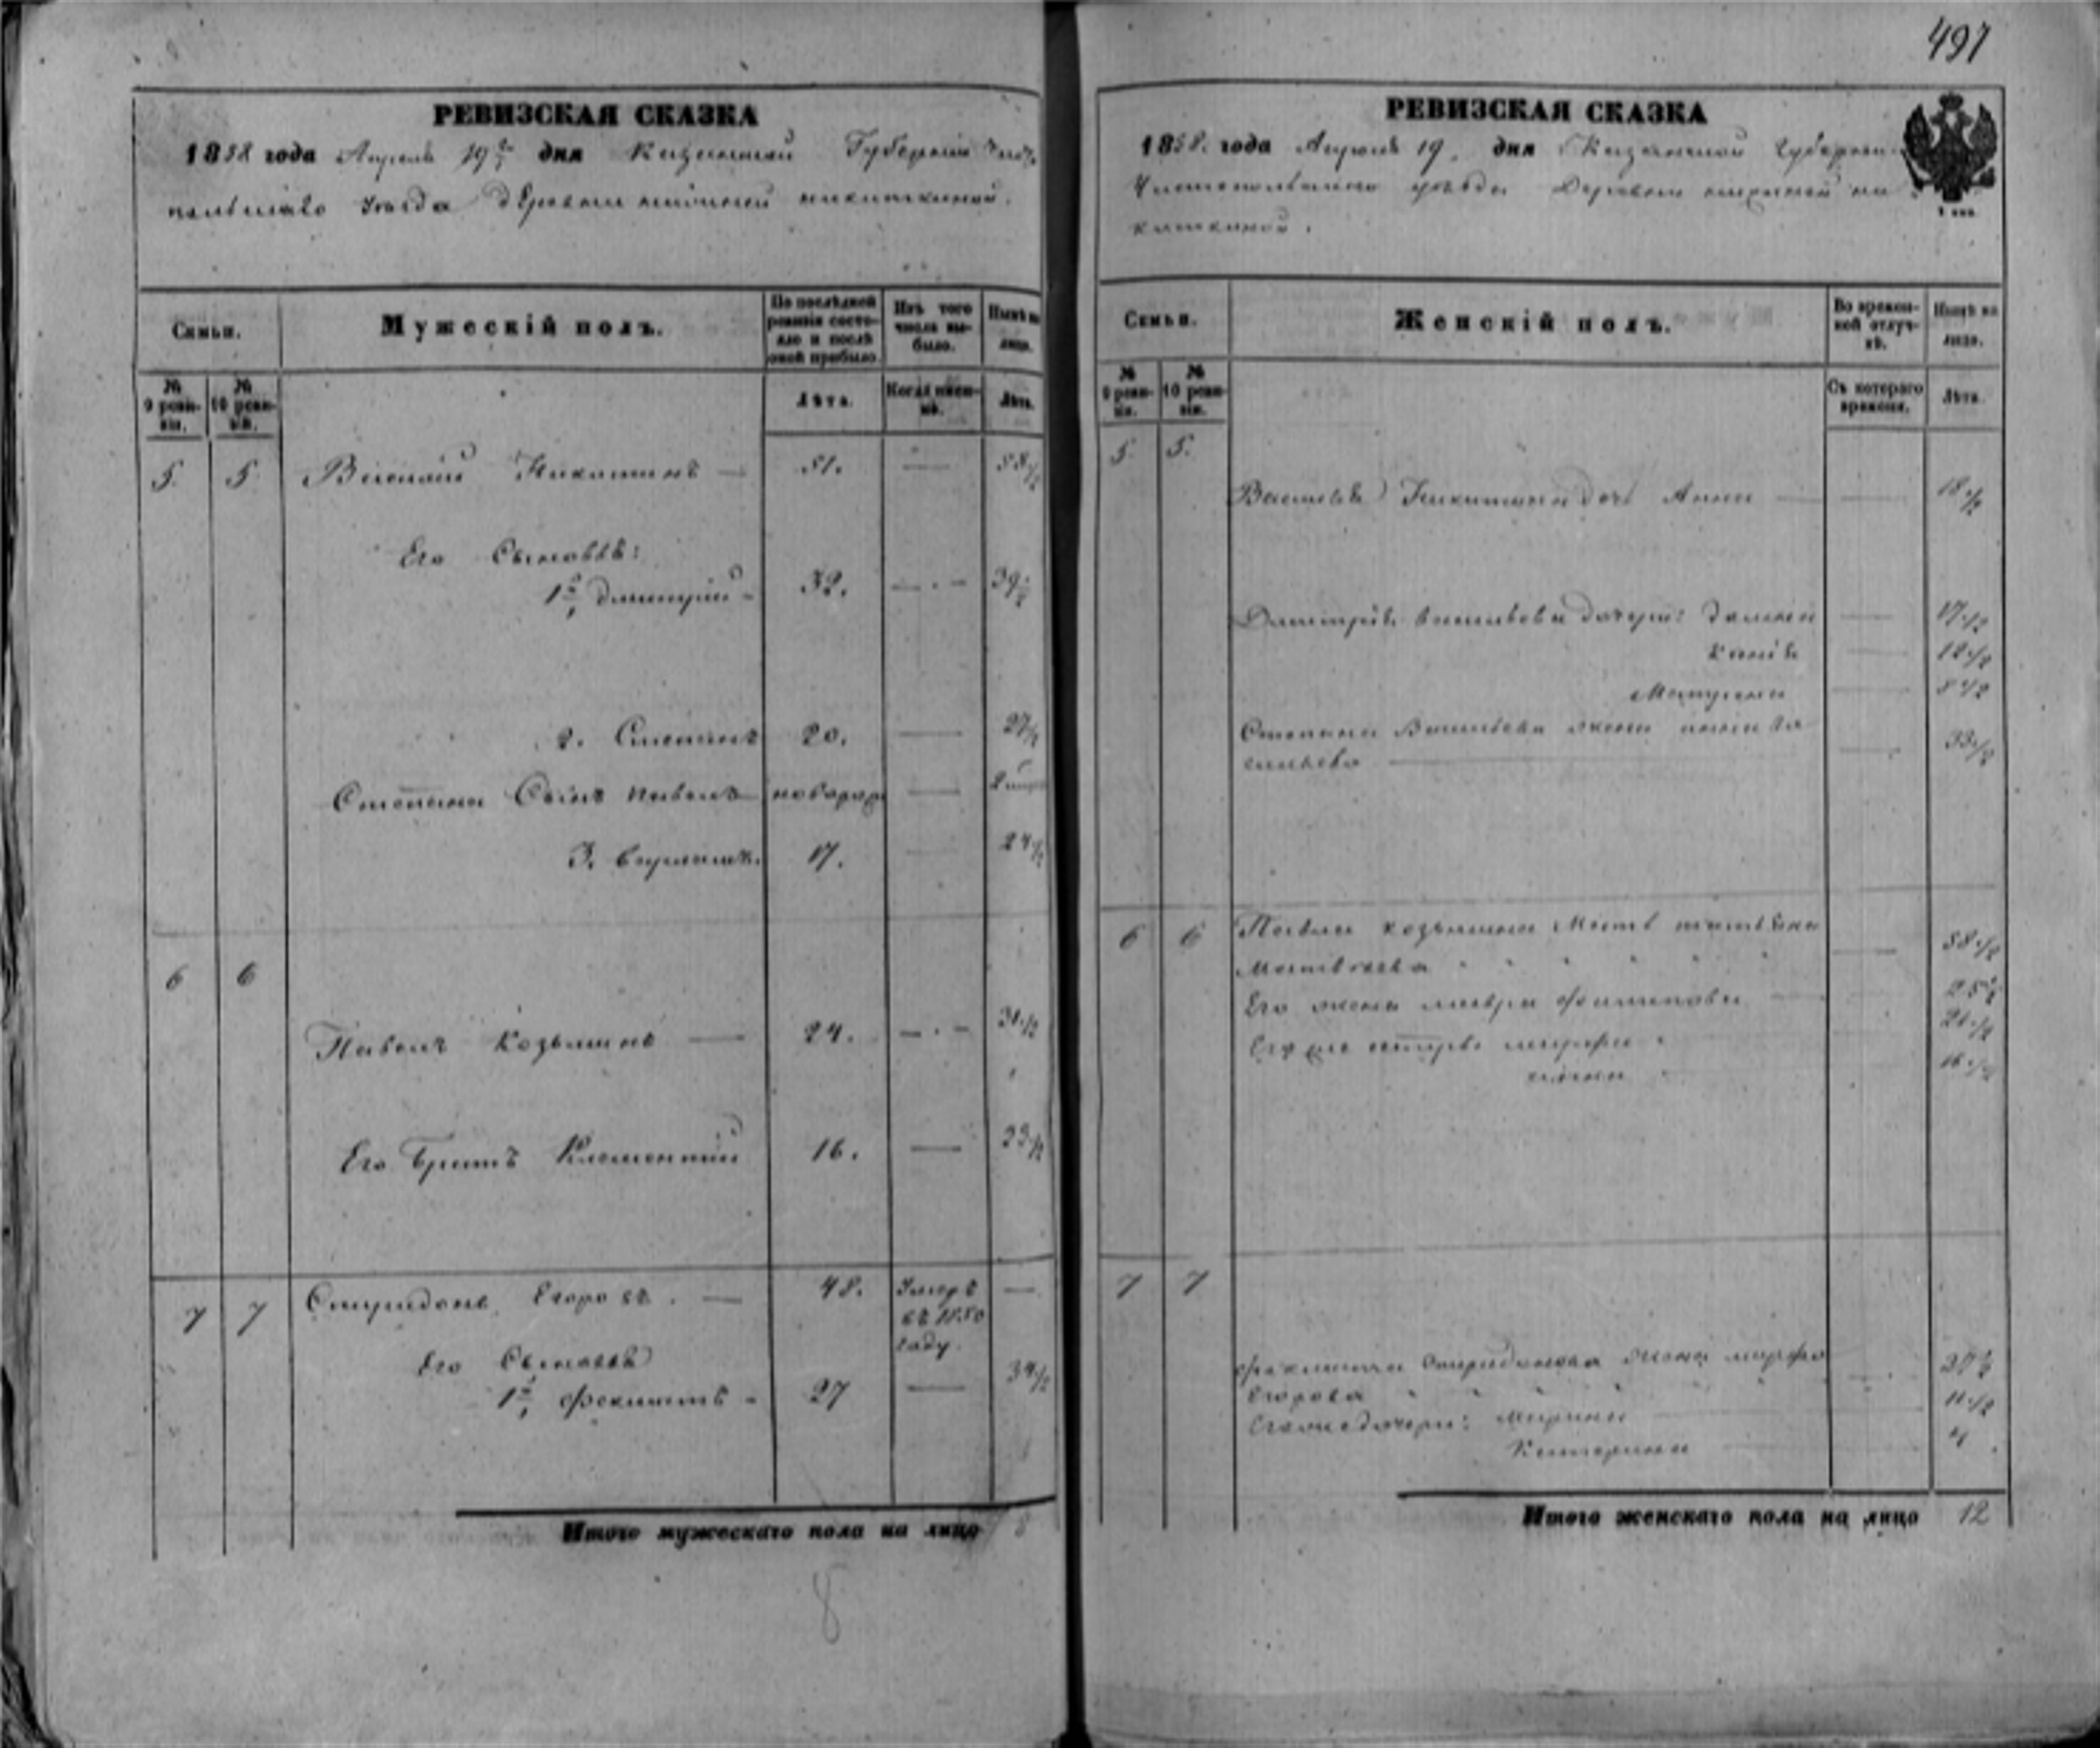 497
РЕВИЗСКАЯ СКАЗКА
1858 года Апреля 19 дня Казанской Губернiи Чисто
польскаго Уезда деревни никиткиной.
Семьи.
Мужескiй полъ.
По послѣдней ревизiи состояло и послѣ оной прибыло.
Изъ того числа выбыло.
Нынѣ на лицо.
№ 9 ревизiи.
№ 10 ревизiи.
Лѣта.
Когда именно.
Лѣта.
5. 5 Василiй Никитинъ — 51. — 58 1/2
Его Сыновья:
1й Дмитрiй - 32. — 39 1/2
2. Степанъ 20. — 27 1/2
Степана Сынъ Павелъ —
3. 17. — 24 1/2
6 6
Павелъ Козьминъ — 24. — 31 1/2
Его Братъ Клементiй 16. — 23 1/2
7 7 Спиридонъ Егоровъ. — 48. Умеръ въ 1850 году. —
Его Сыновья
1й Феклистъ - 27 — 34 1/2
Итого мужескаго пола на лицо 8
8
РЕВИЗСКАЯ СКАЗКА
1858. года Апреля 19. дня Казанской Губернiи
Чистопольскаго уезда Деревни ни
киткиной.
Семьи.
Женскiй полъ.
Во временной отлучкѣ.
Нынѣ на лицо.
№ 9 ревизiи.
№ 10 ревизiи.
Съ котораго времени.
Лѣта.
5. 5.
Василья Никитина дочь Анна — 18 1/2
Дмитрiя Васильева дочери: — 17 1/2
— 12 1/2
Матрена — 8 1/2
Степана Васильева жена Ва
сильева — 33 1/2
6 6 Павла Козьмина Мать татьяна
Матвеева — 58 1/2
Его жена мавра Филипова — 25 1/2
Его же сестры марфа 21 1/2
16 1/2
7 7
Феклиста Спиридонова жена марфа
Егорова
Его же дочери: Марина — 11 1/2
Катерина — 4.
Итого женскаго пола на лицо 12